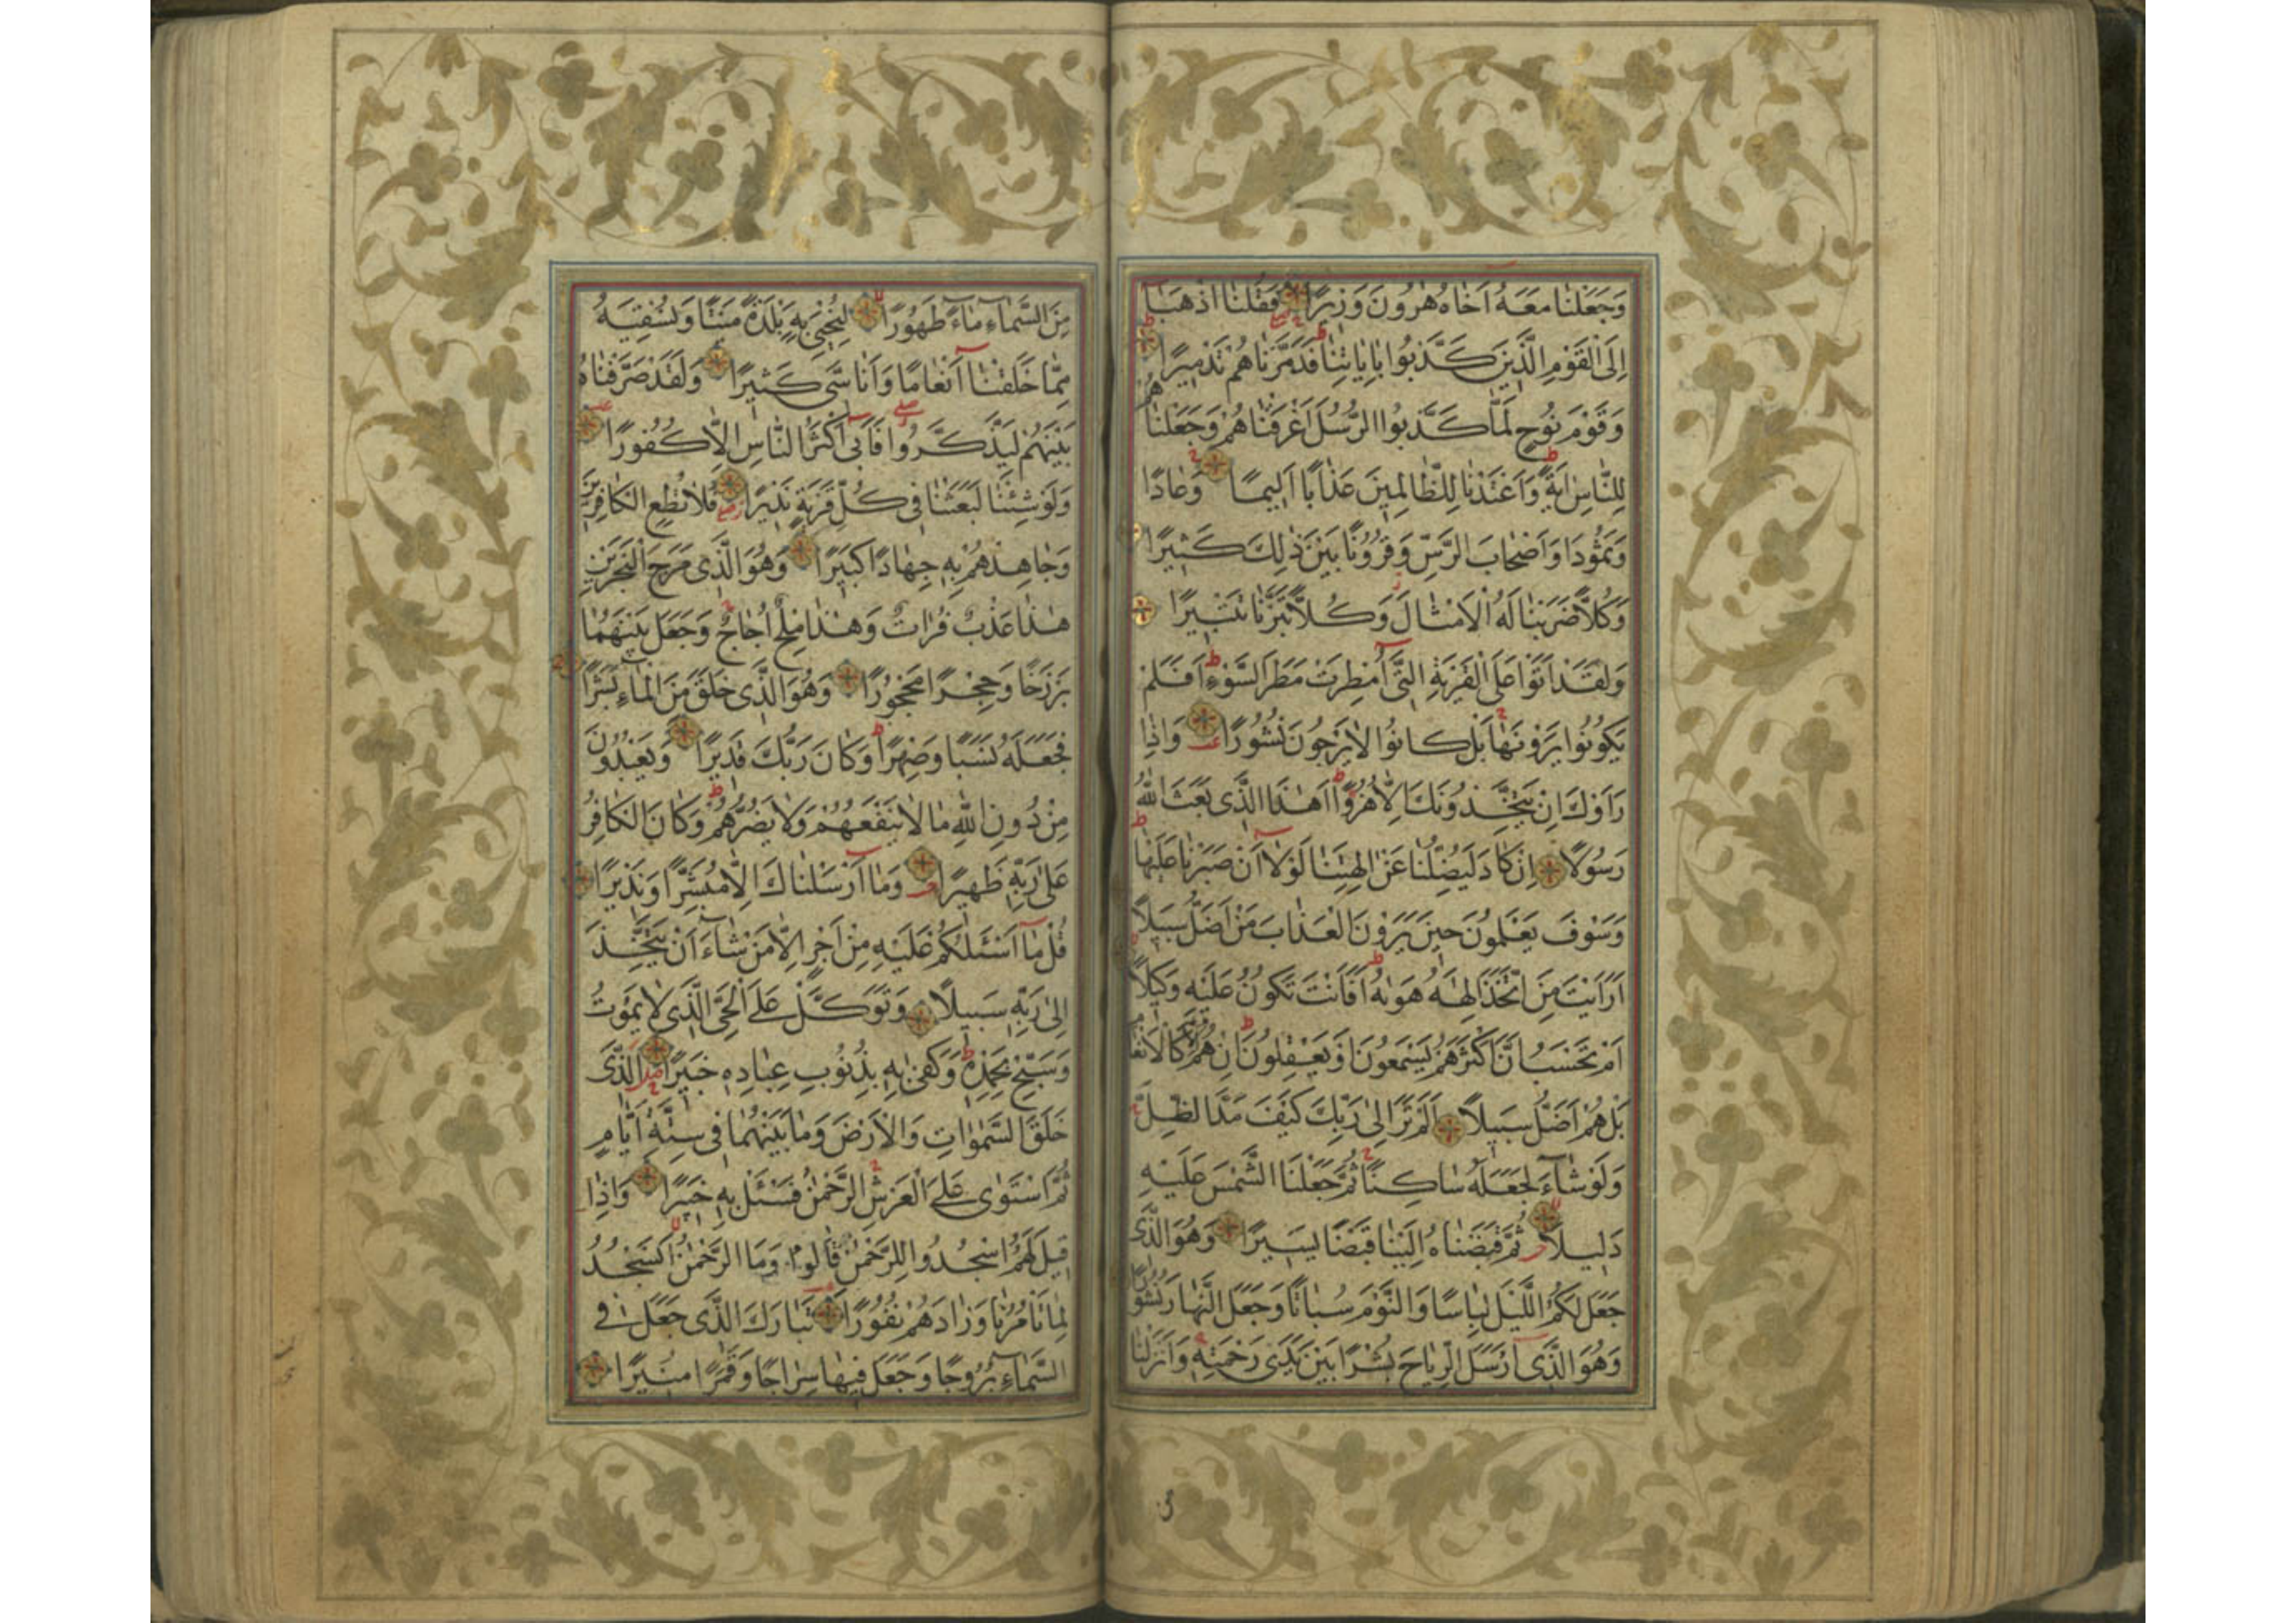 وَجَعَلْنَا مَعَهُ اَخَاهُ هٰرُونَ وَزِيرًا فَقُلْنَا اذْهَبَا
اِلَى الْقَوْمِ الَّذِينَ كَذَّبُوا بِاٰيَاتِنَا فَدَمَّرْنَاهُمْ تَدْمِيرًا
وَقَوْمَ نُوحٍ لَمَّا كَذَّبُوا الرُّسُلَ اَغْرَقْنَاهُمْ وَجَعَلْنَاهُمْ
لِلنَّاسِ اٰيَةً وَاَعْتَدْنَا لِلظَّالِمِينَ عَذَابًا اَلِيمًا وَعَادًا
وَثَمُودَا وَاَصْحَابَ الرَّسِّ وَقُرُونًا بَيْنَ ذٰلِكَ كَثِيرًا
وَكُلًّا ضَرَبْنَا لَهُ الْاَمْثَالَ وَكُلًّا تَبَّرْنَا تَتْبِيرًا
وَلَقَدْ اَتَوْا عَلَى الْقَرْيَةِ الَّتِى اُمْطِرَتْ مَطَرَ السَّوْءِ اَفَلَمْ
يَكُونُوا يَرَوْنَهَا بَلْ كَانُوا لَا يَرْجُونَ نُشُورًا وَاِذَا
رَاَوْكَ اِنْ يَتَّخِذُونَكَ اِلَّا هُزُوًا اَهٰذَا الَّذِى بَعَثَ اللهُ
رَسُولًا اِنْ كَادَ لَيُضِلُّنَا عَنْ اٰلِهَتِنَا لَوْلَا اَنْ صَبَرْنَا عَلَيْهَا
وَسَوْفَ يَعْلَمُونَ حِينَ يَرَوْنَ الْعَذَابَ مَنْ اَضَلُّ سَبِيلًا
اَرَاَيْتَ مَنِ اتَّخَذَ اِلٰهَهُ هَوٰيهُ اَفَاَنْتَ تَكُونُ عَلَيْهِ وَكِيلًا
اَمْ تَحْسَبُ اَنَّ اَكْثَرَهُمْ يَسْمَعُونَ اَوْ يَعْقِلُونَ اِنْ هُمْ اِلَّا كَالْاَنْعَامِ
بَلْ هُمْ اَضَلُّ سَبِيلًا اَلَمْ تَرَ اِلٰى رَبِّكَ كَيْفَ مَدَّ الظِّلَّ
وَلَوْ شَآءَ لَجَعَلَهُ سَاكِنًا ثُمَّ جَعَلْنَا الشَّمْسَ عَلَيْهِ
دَلِيلًا ثُمَّ قَبَضْنَاهُ اِلَيْنَا قَبْضًا يَسِيرًا وَهُوَ الَّذِى
جَعَلَ لَكُمُ اللَّيْلَ لِبَاسًا وَالنَّوْمَ سُبَاتًا وَجَعَلَ النَّهَارَ نُشُورًا
وَهُوَ الَّذِى اَرْسَلَ الرِّيَاحَ بُشْرًا بَيْنَ يَدَىْ رَحْمَتِهِ وَاَنْزَلْنَا
مِنَ السَّمَاءِ مَاءً طَهُورًا لِنُحْيِىَ بِهِ بَلْدَةً مَيْتًا وَنُسْقِيَهُ
مِمَّا خَلَقْنَا اَنْعَامًا وَاَنَاسِىَّ كَثِيرًا وَلَقَدْ صَرَّفْنَاهُ
بَيْنَهُمْ لِيَذَّكَّرُوا فَاَبٰى اَكْثَرُ النَّاسِ اِلَّا كُفُورًا
وَلَوْ شِئْنَا لَبَعَثْنَا فِى كُلِّ قَرْيَةٍ نَذِيرًا فَلَا تُطِعِ الْكَافِرِينَ
وَجَاهِدْهُمْ بِهِ جِهَادًا كَبِيرًا وَهُوَ الَّذِى مَرَجَ الْبَحْرَيْنِ
هٰذَا عَذْبٌ فُرَاتٌ وَهٰذَا مِلْحٌ اُجَاجٌ وَجَعَلَ بَيْنَهُمَا
بَرْزَخًا وَحِجْرًا مَحْجُورًا وَهُوَ الَّذِى خَلَقَ مِنَ الْمَاءِ بَشَرًا
فَجَعَلَهُ نَسَبًا وَصِهْرًا وَكَانَ رَبُّكَ قَدِيرًا وَيَعْبُدُونَ
مِنْ دُونِ اللهِ مَا لَا يَنْفَعُهُمْ وَلَا يَضُرُّهُمْ وَكَانَ الْكَافِرُ
عَلٰى رَبِّهِ ظَهِيرًا وَمَا اَرْسَلْنَاكَ اِلَّا مُبَشِّرًا وَنَذِيرًا
قُلْ مَا اَسْئَلُكُمْ عَلَيْهِ مِنْ اَجْرٍ اِلَّا مَنْ شَآءَ اَنْ يَتَّخِذَ
اِلٰى رَبِّهِ سَبِيلًا وَتَوَكَّلْ عَلَى الْحَىِّ الَّذِى لَا يَمُوتُ
وَسَبِّحْ بِحَمْدِهِ وَكَفٰى بِهِ بِذُنُوبِ عِبَادِهِ خَبِيرًا الَّذِى
خَلَقَ السَّمٰوَاتِ وَالْاَرْضَ وَمَا بَيْنَهُمَا فِى سِتَّةِ اَيَّامٍ
ثُمَّ اسْتَوٰى عَلَى الْعَرْشِ الرَّحْمٰنُ فَسْئَلْ بِهِ خَبِيرًا وَاِذَا
قِيلَ لَهُمُ اسْجُدُوا لِلرَّحْمٰنِ قَالُوا وَمَا الرَّحْمٰنُ اَنَسْجُدُ
لِمَا تَاْمُرُنَا وَزَادَهُمْ نُفُورًا تَبَارَكَ الَّذِى جَعَلَ فِى
السَّمَاءِ بُرُوجًا وَجَعَلَ فِيهَا سِرَاجًا وَقَمَرًا مُنِيرًا